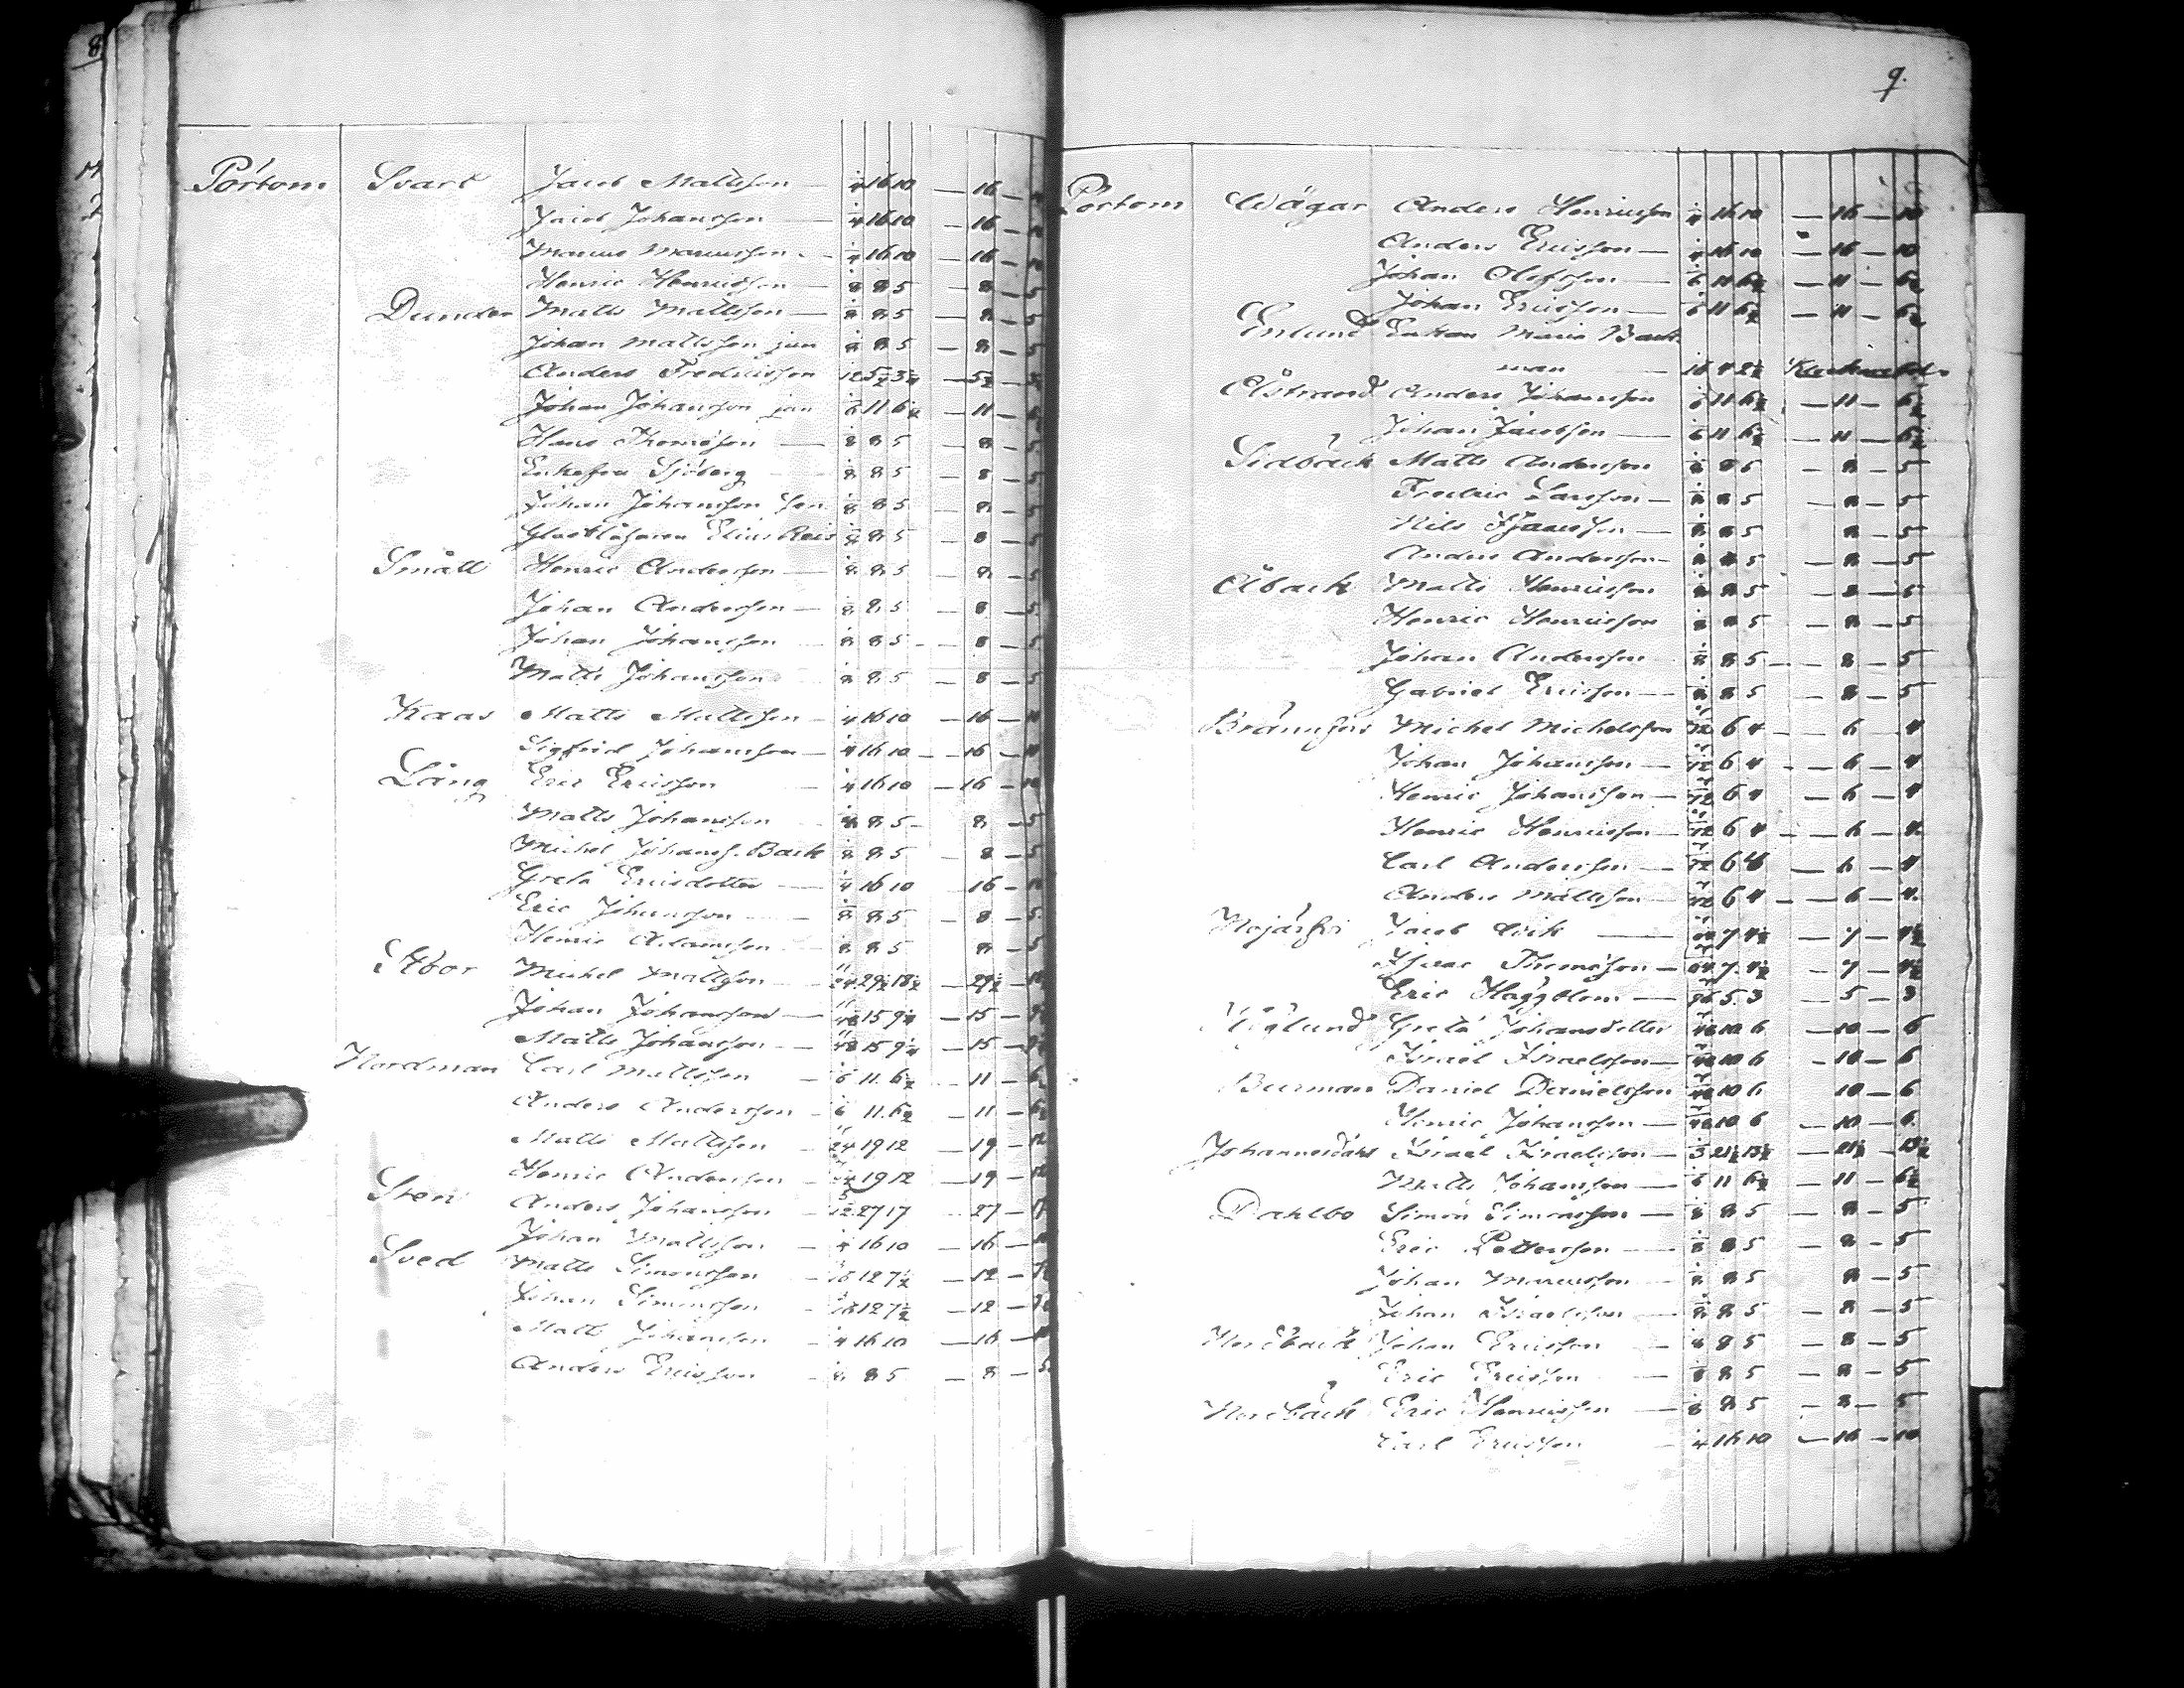 8
Pörtom Svart Jacob Mattsson — 1/4 16 10 — 16 —
Jacob Johansson — 1/4 16 10 — 16 —
Marcus Marcusson — 1/4 16 10 — 16 —
Henric Henricsson — 1/8 8 5 — 8 — 5
Dunder Matts Mattsson — 1/8 8 5 — 8 — 5
Johan Mattsson jun 1/8 8 5 — 8 — 5
Anders Fredricsson 1/12 5 1/2 3 1/4 — 5 1/2 —
Johan Johansson jun 1/6 11 6 1/2 — 11 —
Hans Thomsson — 1/8 8 5 — 8 — 5
Enkefru Sjöberg 1/8 8 5 — 8 — 5
Johan Johansson Sen 1/8 8 5 — 8 — 5
Glasblåsaren Elias Reis 1/8 8 5 — 8 — 5
Småll Henric Andersson — 1/8 8 5 — 8 — 5
Johan Andersson — 1/8 8 5 — 8 — 5
Johan Johansson 1/8 8 5 — 8 — 5
Matts Johansson 1/8 8 5 — 8 — 5
Kaas Matts Mattsson — 1/4 16 10 — 16 —
Sigfrid Johansson — 1/4 16 10 — 16 —
Lång Eric Ericsson — 1/4 16 10 — 16 — 10
Matts Johansson 1/8 8 5 — 8 — 5
Michel Johanss. Back 1/8 8 5 — 8 — 5
Greta Ericsdotter — 1/4 16 10 16 —
Eric Johansson — 1/8 8 5 — 8 — 5
Henric Adamsson 1/8 8 5 8 — 5
Stor Michel Mattsson — 11/24 29 1/2 18 1/2 — 29 1/2 —
Johan Johansson — 11/48 15 9 1/4 — 15 —
Matts Johansson — 11/48 15 9 1/4 — 15 —
Nordman Carl Mattsson — 1/6 11 6 1/2 — 11 —
Anders Andersson — 1/6 11 6 1/2 — 11 —
Matts Mattsson — 24 19 12 — 19 — 12
Henric Andersson — 24 19 12 — 19 — 12
Sten Anders Johansson — 5/12 27 17 27 —
Johan Mattsson — 1/4 16 10 — 16 —
Sved Matts Simonsson — 12 7 1/2 — 12 —
Johan Simonsson — 12 7 1/2 — 12 —
Matts Johansson — 1/4 16 10 — 16 —
Anders Ericsson — 1/8 8 5 — 8 — 5
9.
Pörtom Wägar Anders Henricsson 1/4 16 10 — 16 — 10
Anders Ericsson — 1/4 16 10 — 16 — 10
Johan Olofsson — 1/6 11 6 1/2 — 11 — 6 1/2
Johan Ericsson — 1/6 11 6 1/2 — 11 — 6 1/2
Enlund Enkan Maria Back-
man — 4 2 1/2
Åstrand Anders Johansson 1/6 11 6 1/2 — 11 — 6 1/2
Johan Jacobsson — 1/6 11 6 1/2 — 11 — 6 1/2
Sidbäck Matts Andersson 1/8 8 5 — 8 — 5
Fredric Larsson — 1/8 8 5 — 8 — 5
Nils Isaacsson — 1/8 8 5 8 — 5
Anders Andersson — 1/8 8 5 — 8 — 5
Åback Matts Henricsson 1/8 8 5 — 8 — 5
Henric Henricsson 1/8 8 5 — 8 — 5
Johan Andersson 1/8 8 5 — 8 — 5
Gabriel Ericsson — 1/8 8 5 — 8 — 5
Brännfors Michel Michelsson 6 4 — 6 4
Johan Johansson — 6 4 — 6 — 4
Henric Johansson — 6 4 — 6 — 4
Henric Henricsson — 6 4 — 6 — 4
Carl Andersson — 6 4 — 6 — 4
Anders Mattsson — 6 4 — 6 — 4
Jacob Wik — 7 4 1/2 — 7 — 4 1/2
Isaac Thomsson — 7 4 1/2 — 7 — 4 1/2
Eric Häggblom — 96 5 3 — 5 — 3
Höglund Greta Johansdotter 48 10 6 — 10 — 6
Israel Israelsson — 48 10 6 — 10 — 6
Burman Daniel Danielsson 48 10 6 10 — 6
Henric Johansson — 48 10 6 — 10 — 6
Johannesdahl Israel Israelsson — 1/3 21 1/2 13 1/2 — 21 1/2 — 13 1/2
Matts Johansson — 1/6 11 6 1/2 — 11 — 6 1/2
Dahlbo Simon Simonsson — 1/8 8 5 — 8 — 5
Eric Pettersson — 1/8 8 5 — 8 — 5
Johan Marcusson 1/8 8 5 8 — 5
Johan Israelsson — 1/8 8 5 — 8 — 5
Nordback Johan Ericsson — 1/8 8 5 — 8 — 5
Eric Ericsson — 1/8 8 5 — 8 — 5
Nordbäck Eric Henricsson — 1/8 8 5 — 8 — 5
Carl Ericsson — 1/4 16 10 — 16 — 10